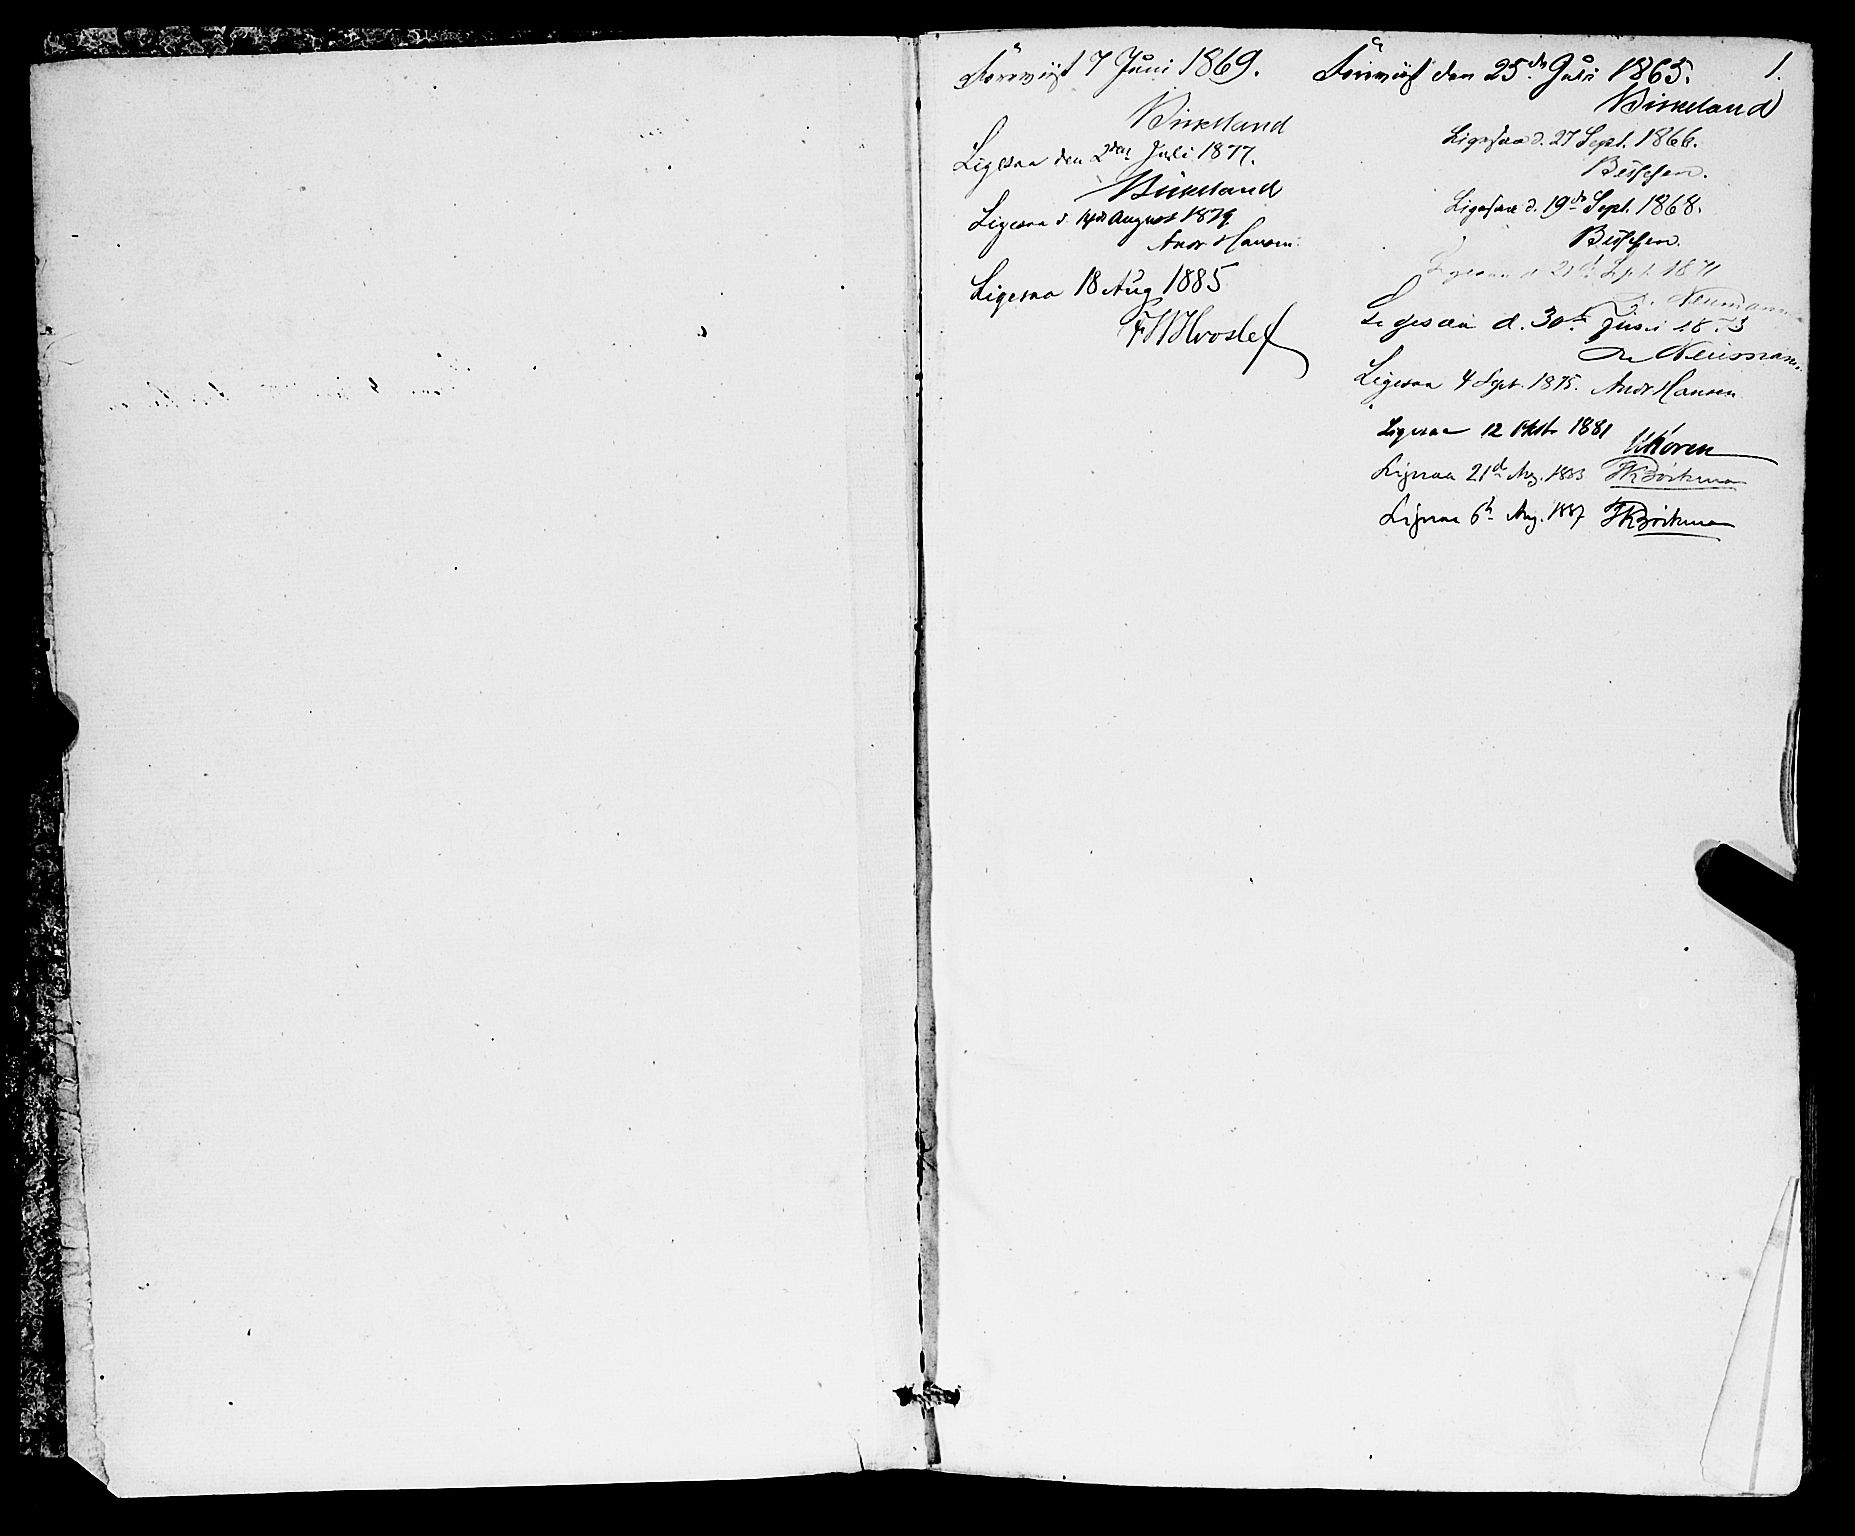 Foreviist 7 Juni 1869.
Birkeland
Ligesaa den 2den Juli 1877.
Birkeland
Ligesaa d. 14de August 1879
Andr Hansen
Ligesaa 18 Aug 1885
FWHvoslef
1.
Foreviist den 25de Juli 1865.
Birkeland
Ligesaa d. 27 Sept. 1866.
Ligesaa d. 19de Sept. 1868.
Ligesaa d. Sept. 1871
Neumann
Ligesaa d. 30te Juni 1873
Neumann
Ligesaa 4 Sept. 1875. Andr Hansen
Ligesaa 12 Oktbr 1881 Koren
Ligesaa 21d Aug. 1883 Böckman
Ligesaa 6te Aug. 1887 Böckman